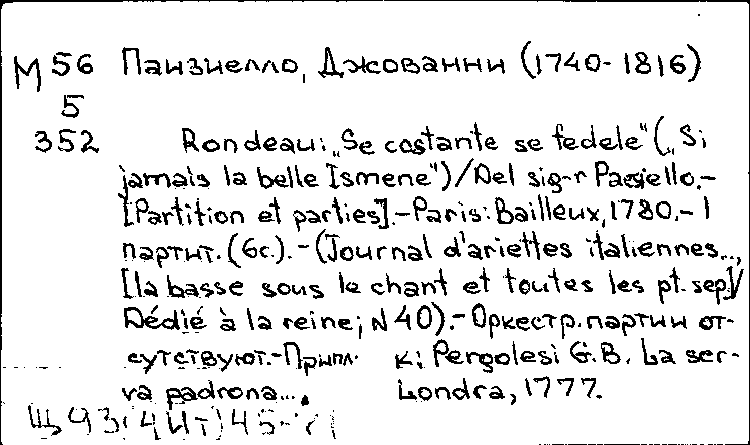 М 56 Паизиелло, Джованни (1740-1816)
5
352 Rondeau: „Se costante se fedele" („Si
jamais la belle Ismene")/Del sig-r Paesiello.-
[Partition et parties].-Paris: Bailleux, 1780.-1
партит. (6с.). - (Journal d'ariettes italiennes...,
[la basse sous le chant et toutes les pt. sep.]/
Dédié à la reine; N 40).- Оркестр. партии от-
сутствуют.-Припл. к: Pergolesi G.B. La ser-
va padrona.... Londra, 1777.
Щ93(4Ит)45-